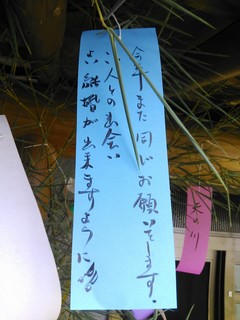 今年また同じお願いをします。
いい人との出会い
よい結婚が出来ますように
天の川